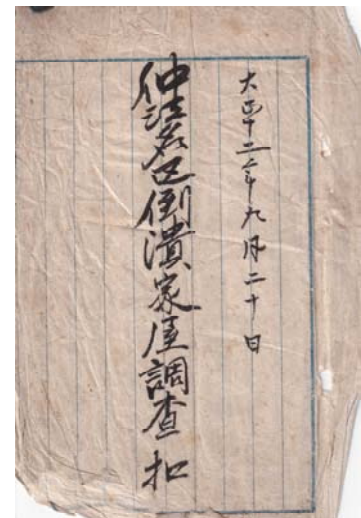 大正十二年九月二十日
仲江名区倒潰家屋調査扣